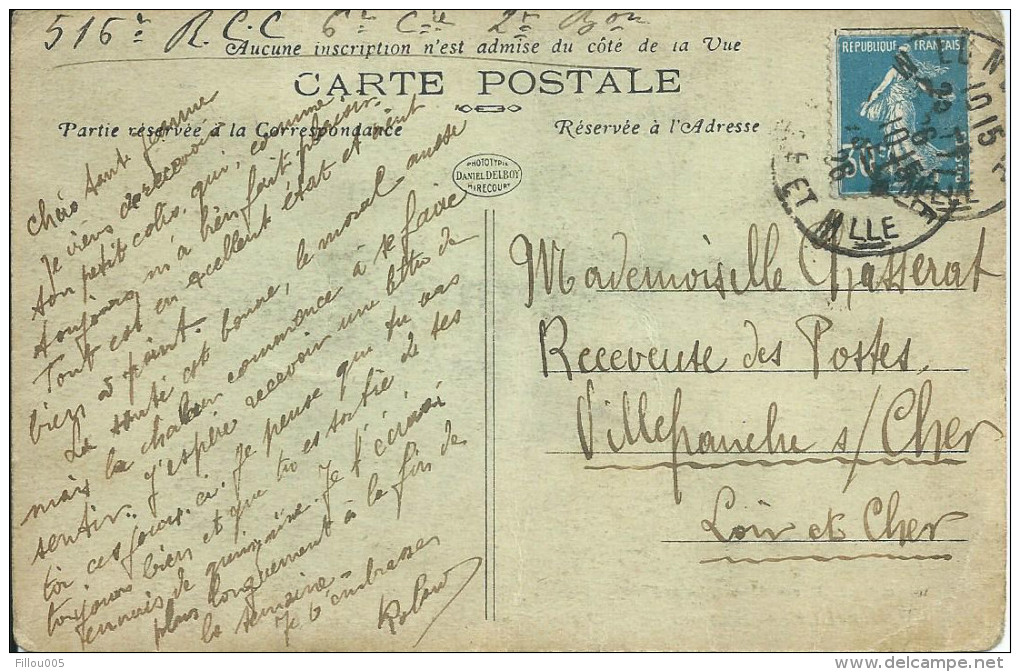 516e R.C.C 6e Cie 2e Bon
Aucune inscription n'est admise du côté de la Vue
CARTE POSTALE
Partie réservée à la Correspondance
Réservée à l'Adresse
PHOTOTYPIE
DANIEL DELBOY
MIRECOURT
RÉPUBLIQUE FRANÇAISE
ET MLLE
Chère tante Jeanne
Je viens de recevoir
ton petit colis qui, comme
toujours m'a bien fait plaisir.
Tout est en excellent état et vient
bien à point.
La santé est bonne, le moral aussi
mais la chaleur commence à se faire
sentir. J'espère recevoir une lettre de
toi ces jours-ci. Je pense que tu vas
toujours bien et que tu es sortie de tes
ennuis de quinzaine. Je t'écrirai
plus longuement à la fin de
la semaine -
Je t'embrasse
Roland
Mademoiselle Chasserat
Receveuse des Postes,
Villefranche s/ Cher
Loir et Cher
Fillou005
www.delcampe.net